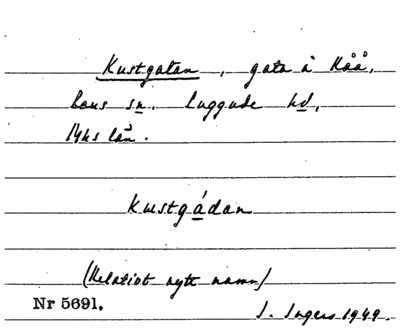 Kustgatan, gata i Råå,
Raus sn. Luggude hd,
Mhs län.
kustgádan
(Relativt nytt namn)
Nr 5691.
I. Ingers 1949.